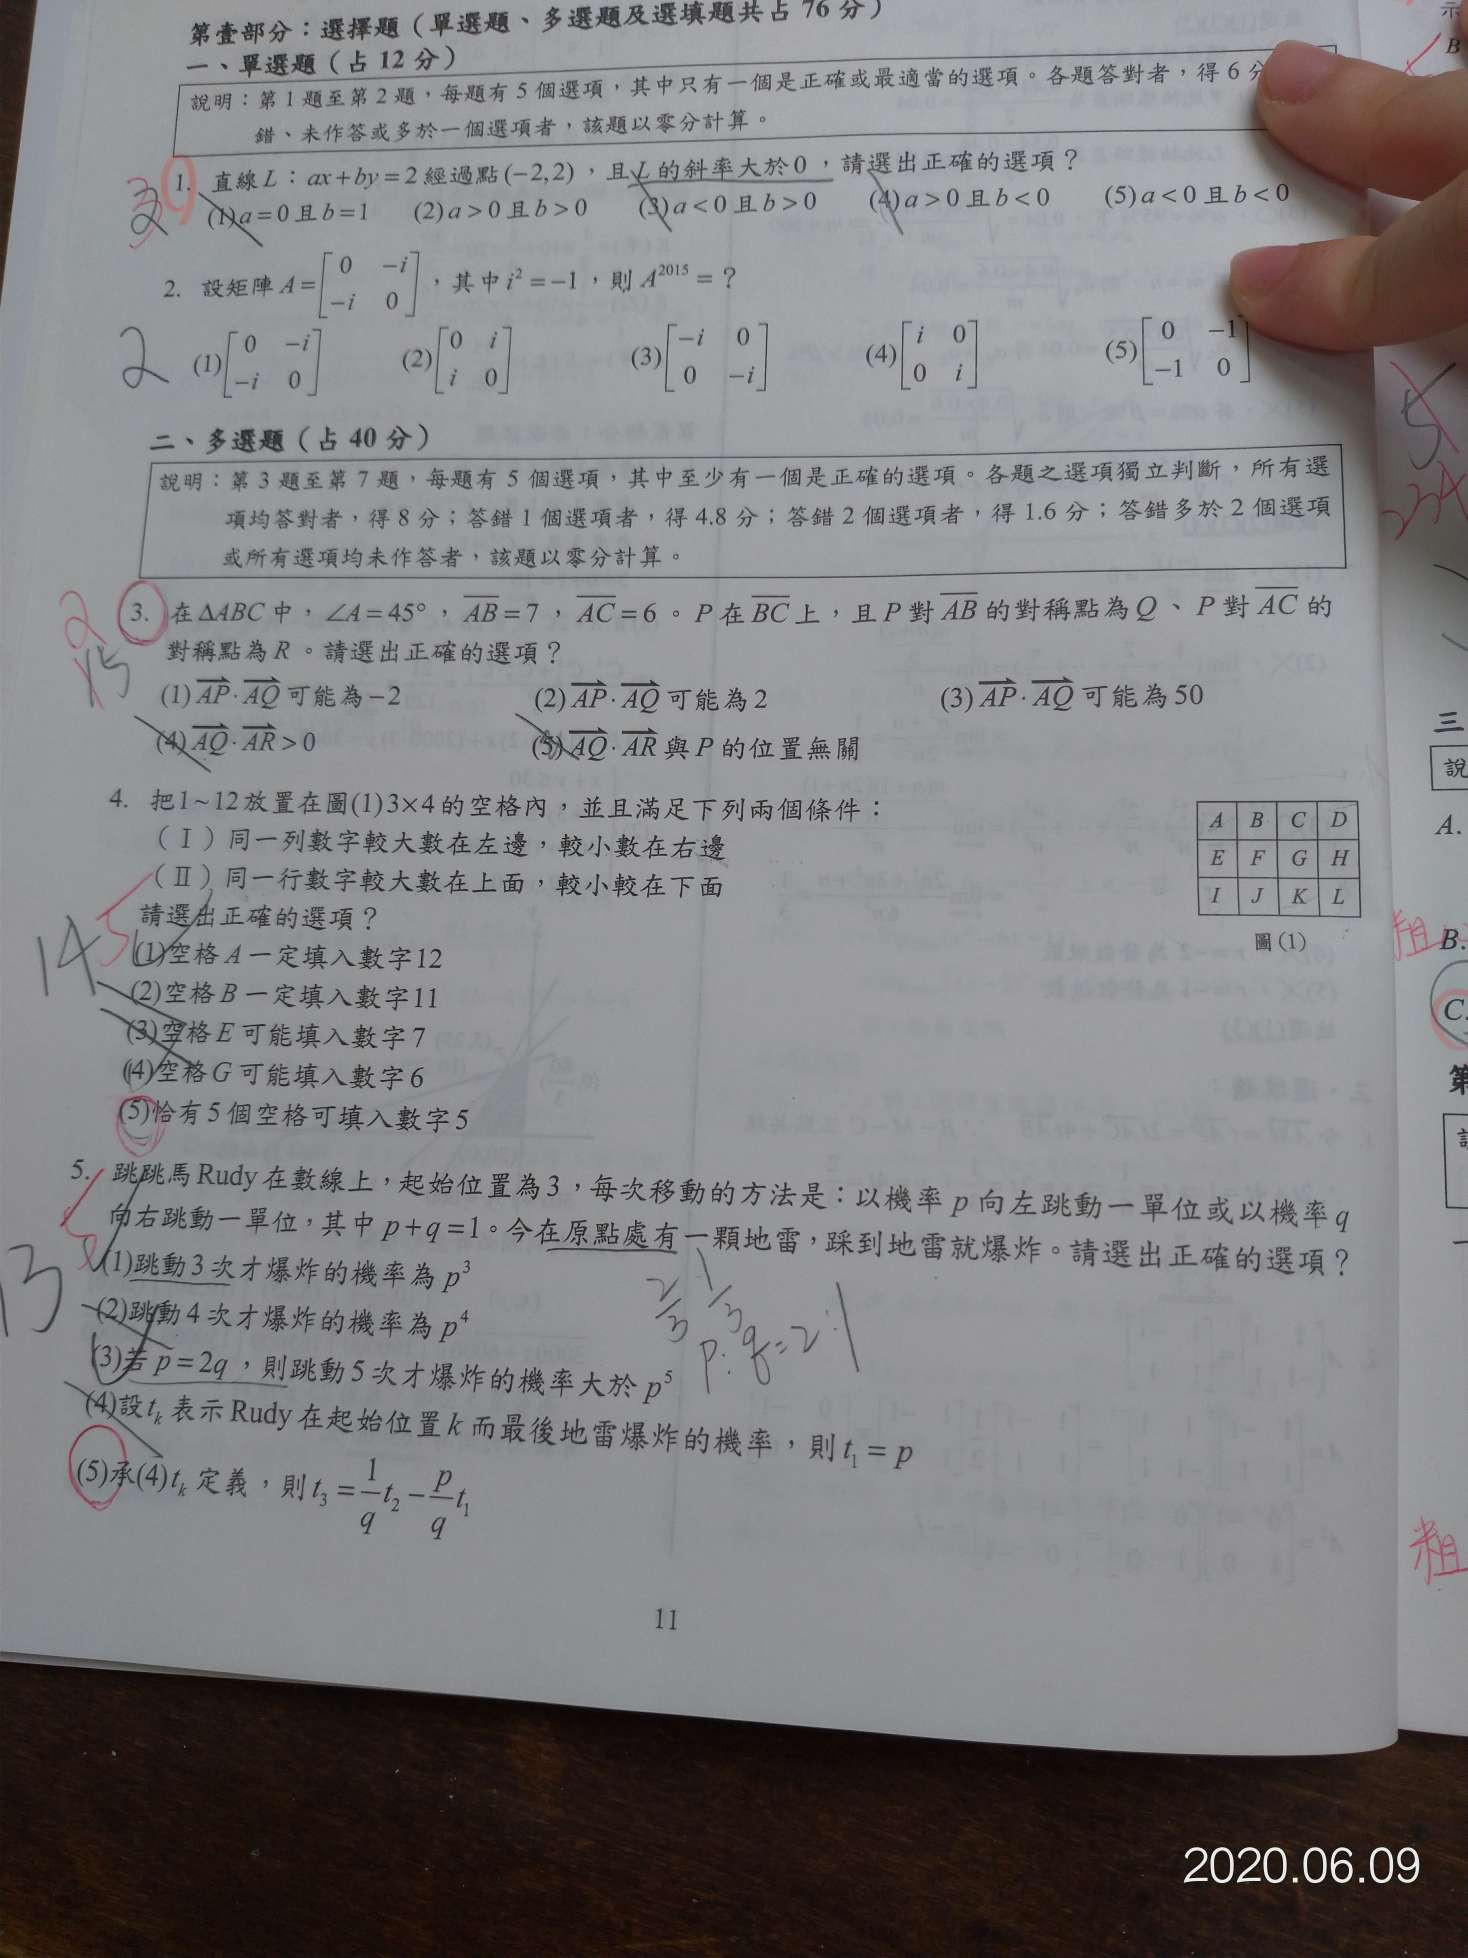 第壹部分：選擇題（單選題、多選題及選填題共占 76 分）
一、單選題（占 12 分）
說明：第 1 題至第 2 題，每題有 5 個選項，其中只有一個是正確或最適當的選項。各題答對者，得 6 分
錯、未作答或多於一個選項者，該題以零分計算。
1. 直線 L：ax+by=2 經過點(−2,2)，且 L 的斜率大於0，請選出正確的選項？
(1) a=0 且 b=1 (2) a>0 且 b>0 (3) a<0 且 b>0 (4) a>0 且 b<0 (5) a<0 且 b<0
2. 設矩陣 A=[0 −i; −i 0]，其中 i²=−1，則 A²⁰¹⁵=？
2 (1)[0 −i; −i 0] (2)[0 i; i 0] (3)[−i 0; 0 −i] (4)[i 0; 0 i] (5)[0 −1; −1 0]
二、多選題（占 40 分）
說明：第 3 題至第 7 題，每題有 5 個選項，其中至少有一個是正確的選項。各題之選項獨立判斷，所有選
項均答對者，得 8 分；答錯 1 個選項者，得 4.8 分；答錯 2 個選項者，得 1.6 分；答錯多於 2 個選項
或所有選項均未作答者，該題以零分計算。
2 3. 在 ΔABC 中，∠A=45°，AB=7，AC=6。P 在 BC 上，且 P 對 AB 的對稱點為 Q、P 對 AC 的
15 對稱點為 R。請選出正確的選項？
(1) AP·AQ 可能為 −2 (2) AP·AQ 可能為 2 (3) AP·AQ 可能為 50
(4) AQ·AR>0 (5) AQ·AR 與 P 的位置無關
4. 把1~12放置在圖(1)3×4的空格內，並且滿足下列兩個條件：
（Ⅰ）同一列數字較大數在左邊，較小數在右邊
（Ⅱ）同一行數字較大數在上面，較小較在下面
請選出正確的選項？
14 5
(1)空格 A 一定填入數字12
(2)空格 B 一定填入數字11
(3)空格 E 可能填入數字 7
(4)空格 G 可能填入數字 6
(5)恰有 5 個空格可填入數字 5
A B C D
E F G H
I J K L
圖(1)
5. 跳跳馬 Rudy 在數線上，起始位置為 3，每次移動的方法是：以機率 p 向左跳動一單位或以機率 q
向右跳動一單位，其中 p+q=1。今在原點處有一顆地雷，踩到地雷就爆炸。請選出正確的選項？
13 5
(1)跳動 3 次才爆炸的機率為 p³
(2)跳動 4 次才爆炸的機率為 p⁴
(3)若 p=2q，則跳動 5 次才爆炸的機率大於 p⁵
2/3 1/3
p:q=2:1
(4)設 tₖ 表示 Rudy 在起始位置 k 而最後地雷爆炸的機率，則 t₁=p
(5)承(4) tₖ 定義，則 t₃=1/q t₂−p/q t₁
11
5
示
B
三
說
A.
粗
B.
C.
第
粗
2020.06.09